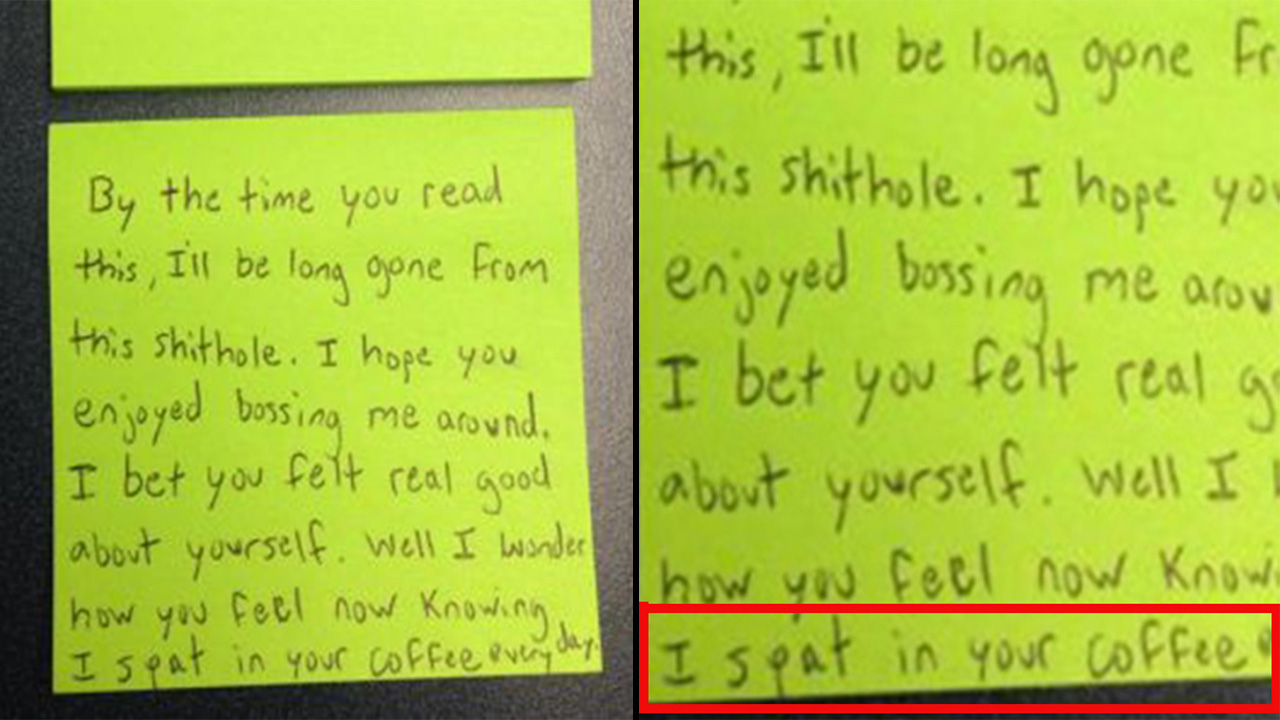 By the time you read
this, I'll be long gone from
this shithole. I hope you
enjoyed bossing me around.
I bet you felt real good
about yourself. Well I wonder
how you feel now Knowing
I spat in your coffee every day.
this, I'll be long gone Fr
this shithole. I hope you
enjoyed bossing me arou
I bet you felt real go
about yourself. Well I
how you feel now Knowi
I spat in your coffee